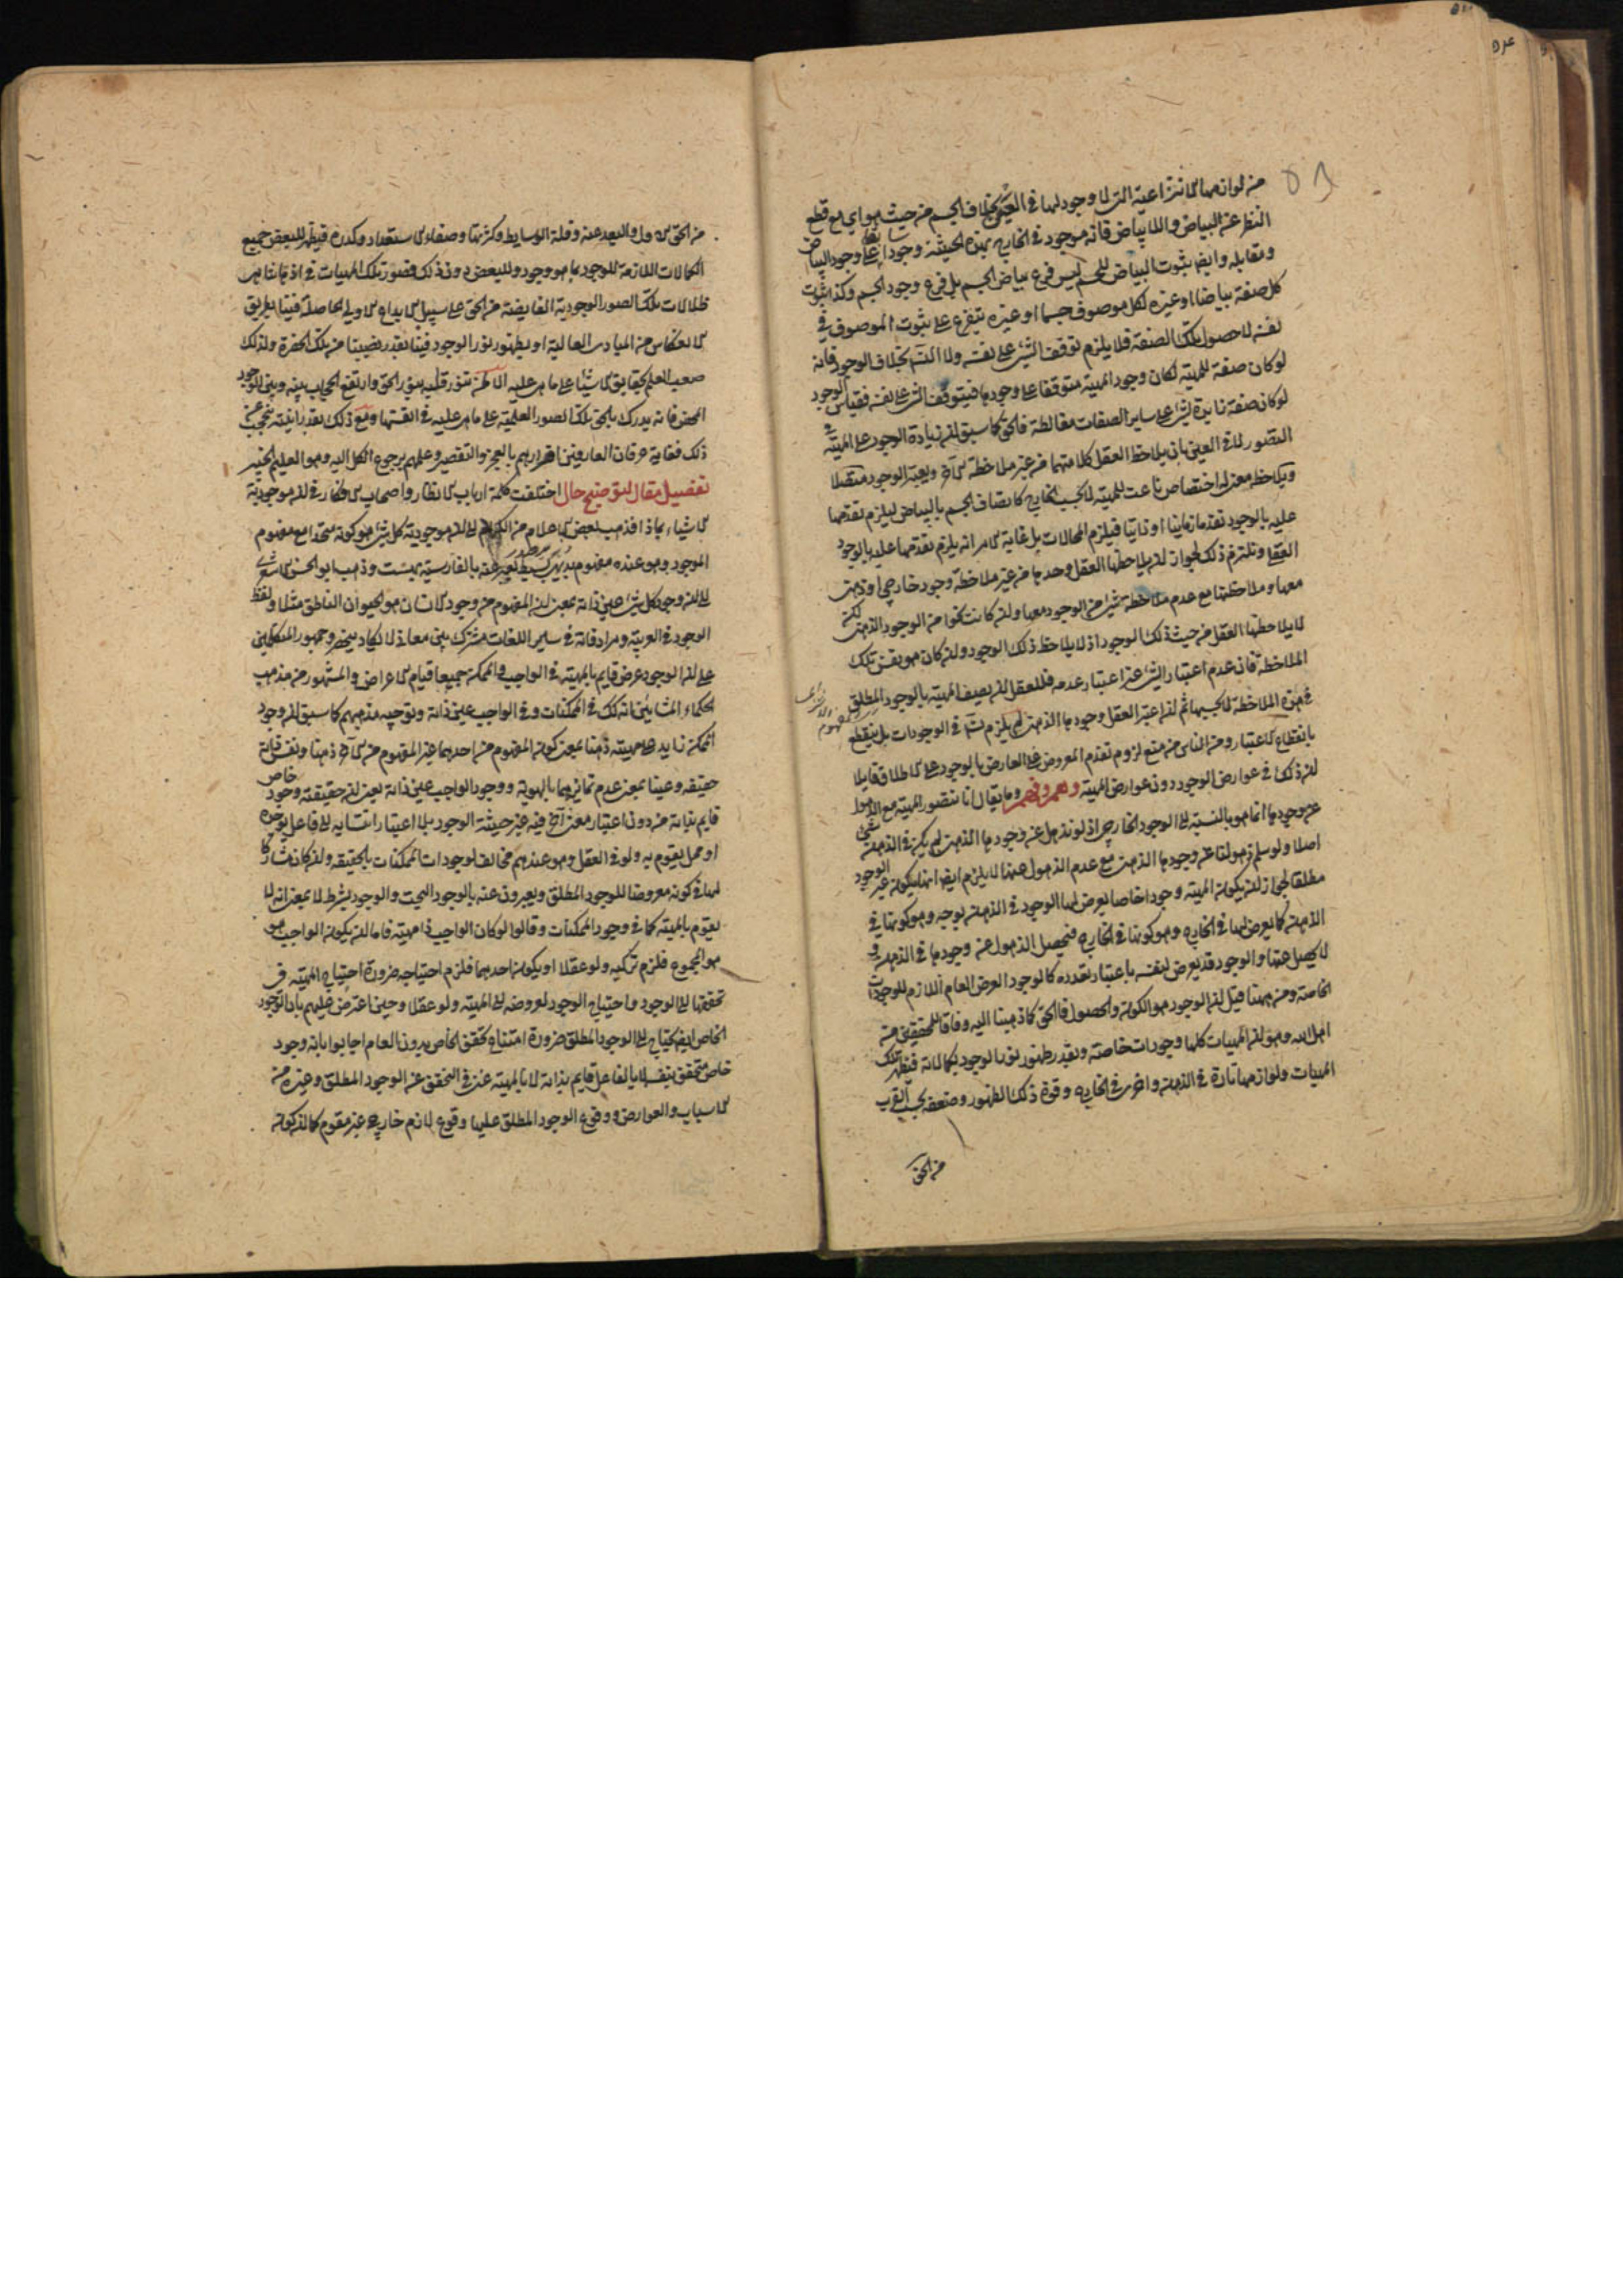 من لوازمها الانتزاعية التي لا وجود لها في العين بخلاف الجسم من حيث هو اي مع قطع
النظر عن البياض واللابياض فانه موجود في الخارج بهذه الحيثية وجودا سابقا على وجود البياض
ومقابله وايضا ثبوت البياض للجسم ليس فرع بياض الجسم بل فرع وجود الجسم وكذا ثبوت
كل صفة بياضا او غيره لكل موصوف جسما او غيره يتفرع على ثبوت الموصوف في
نفسه لا حصول تلك الصفة فلا يلزم توقف الشيء على نفسه ولا التسلسل بخلاف الوجود فانه
لو كان صفة للمهية لكان وجود المهية متوقفا على وجودها فيتوقف الشيء على نفسه فقياس الوجود
لو كان صفة زايدة لشيء على ساير الصفات مغالطة فالحق كما سبق ان زيادة الوجود على المهية في
التصور لا في العين بان يلاحظ العقل كلا منهما من غير ملاحظة الآخر ويعتبر الوجود منفصلا
ويلاحظ معنى له اختصاص ناعت للمهية لا بحسب الخارج كاتصاف الجسم بالبياض ليلزم تقدمها
عليه بالوجود تقدما زمانيا او ذاتيا فيلزم المحالات بل غاية الامر انه يلزم تقدمها عليه بالوجود
العقلي ونلتزم ذلك لجواز ان يلاحظها العقل وحدها من غير ملاحظة وجود خارجي او ذهني
معها وملاحظتها مع عدم ملاحظة شيء من الوجود معها وان كانت نحوا من الوجود الذهني لكن
لا يلاحظها العقل من حيث ذلك الوجود اذ لا يلاحظ ذلك الوجود وان كان هو نفس تلك
الملاحظة فان عدم اعتبار الشيء غير اعتبار عدمه فللعقل ان يصف المهية بالوجود المطلق
في هذه الملاحظة لا بحسبها ثم ان اعتبر العقل وجودها الذهني لم يلزم تسلسل في الوجودات بل ينقطع
بانقطاع الاعتبار ومن الناس من منع لزوم تقدم المعروض على العارض بالوجود على الاطلاق قايلا
ان ذلك في عوارض الوجود دون عوارض المهية وهم وفهم وما يقال انا نتصور المهية مع الذهول
عن وجودها انما هو بالنسبة الى الوجود الخارجي اذ لو نذهل عن وجودها الذهني لم يكن في الذهن شيء
اصلا ولو سلم ذهولنا عن وجودها الذهني مع عدم الذهول عنها لا يلزم ايضا انها يكون غير الوجود
مطلقا لجواز ان يكون المهية وجودا خاصا يعرض لها الوجود في الذهن بوجه وهو كونها في
الذهن كما يعرض لها في الخارج وهو كونها في الخارج فيحصل الذهول عن وجودها في الذهن و
لا يحصل عنها والوجود قد يعرض لنفسه باعتبار تعدده كالوجود العرض العام اللازم للوجودات
الخاصة ومن ههنا قيل ان الوجود هو الكون والحصول فالحق كما ذهبنا اليه وفاقا للمحققين من
اهل الله وهو ان المهيات كلها وجودات خاصة وبقدر ظهور نور الوجود بكمالاته فتظهر تلك
المهيات ولوازمها تارة في الذهن واخرى في الخارج وقوة ذلك الظهور وضعفه بحسب القرب
من الحق
من الحق الاول والبعد عنه وقلة الوسايط وكثرتها وصفاء الاستعداد وكدره فيظهر للبعض جميع
الكمالات اللازمة للوجود بما هو وجود وللبعض دون ذلك فصور تلك المهيات في اذهاننا هي
ظلالات تلك الصور الوجودية الفايضة من الحق على سبيل الابداع الاولي الحاصلة فينا بطريق
الانعكاس من المبادي العالية او بظهور نور الوجود فينا بقدر نصيبنا من تلك الحضرة ولذلك
صعب العلم بحقايق الاشياء على ما هي عليه الا لمن تنور قلبه بنور الحق وارتفع الحجاب بينه وبين الوجود
المحض فانه يدرك بالحق تلك الصور العلمية على ما هي عليه في انفسها ومع ذلك بقدر انيته ينحجب عن
ذلك فغاية عرفان العارفين اقرارهم بالعجز والتقصير وعلمهم برجوع الكل اليه وهو العليم الخبير
تفصيل مقال لتوضيح حال اختلفت كلمة ارباب الانظار واصحاب الافكار في ان موجودية
الاشياء بماذا فذهب بعض الاعلام من الكرام الى ان موجودية كل شيء هو كونه متحدا مع مفهوم
الموجود وهو عنده مفهوم بديهي بسيط يعبر عنه بالفارسية بهست وذهب ابو الحسن الاشعري
الى ان وجود كل شيء عين ذاته بمعنى ان المفهوم من وجود الانسان هو الحيوان الناطق مثلا ولفظ
الوجود في العربية ومرادفاته في ساير اللغات مشترك بين معان لا يكاد ينحصر وجمهور المتكلمين
على ان الوجود عرض قايم بالمهية في الواجب والممكن جميعا قيام الاعراض والمشهور من مذهب
الحكماء المشائين انه كذلك في الممكنات وفي الواجب عين ذاته وتوجيه مذهبهم كما سبق ان وجود
الممكن زايد على مهيته ذهنا بمعنى كون المفهوم من احدهما غير المفهوم من الآخر ذهنا ونفس ذاته
حقيقة وعينا بمعنى عدم تمايزهما بالهوية ووجود الواجب عين ذاته بمعنى ان حقيقته وجود خاص
قايم بذاته من دون اعتبار معنى آخر فيه غير حيثية الوجود بلا اعتبار انتسابه الى فاعل يوجده
او محل يقوم به ولو في العقل وهو عندهم مخالف لوجودات الممكنات بالحقيقة وان كان مشاركا
لها في كونه معروضا للوجود المطلق ويعبرون عنه بالوجود البحت والوجود بشرط لا بمعنى انه لا
يقوم بالمهية كما في وجود الممكنات وقالوا لو كان الواجب ذا مهية فاما ان يكون الواجب هو
هو المجموع فلزم تركيبه ولو عقلا او يكون احدهما فلزم احتياجه ضرورة احتياج المهية في
تحققها الى الوجود واحتياج الوجود لعروضه الى المهية ولو عقلا وحين اعترض عليهم بان الوجود
الخاص ايضا يحتاج الى الوجود المطلق ضرورة امتناع تحقق الخاص بدون العام اجابوا بانه وجود
خاص متحقق بنفسه لا بالفاعل قايم بذاته لا بالمهية غني في التحقق عن الوجود المطلق وغيره من
الاسباب والعوارض ووقوع الوجود المطلق عليها وقوع لازم خارجي غير مقوم كما ان كون